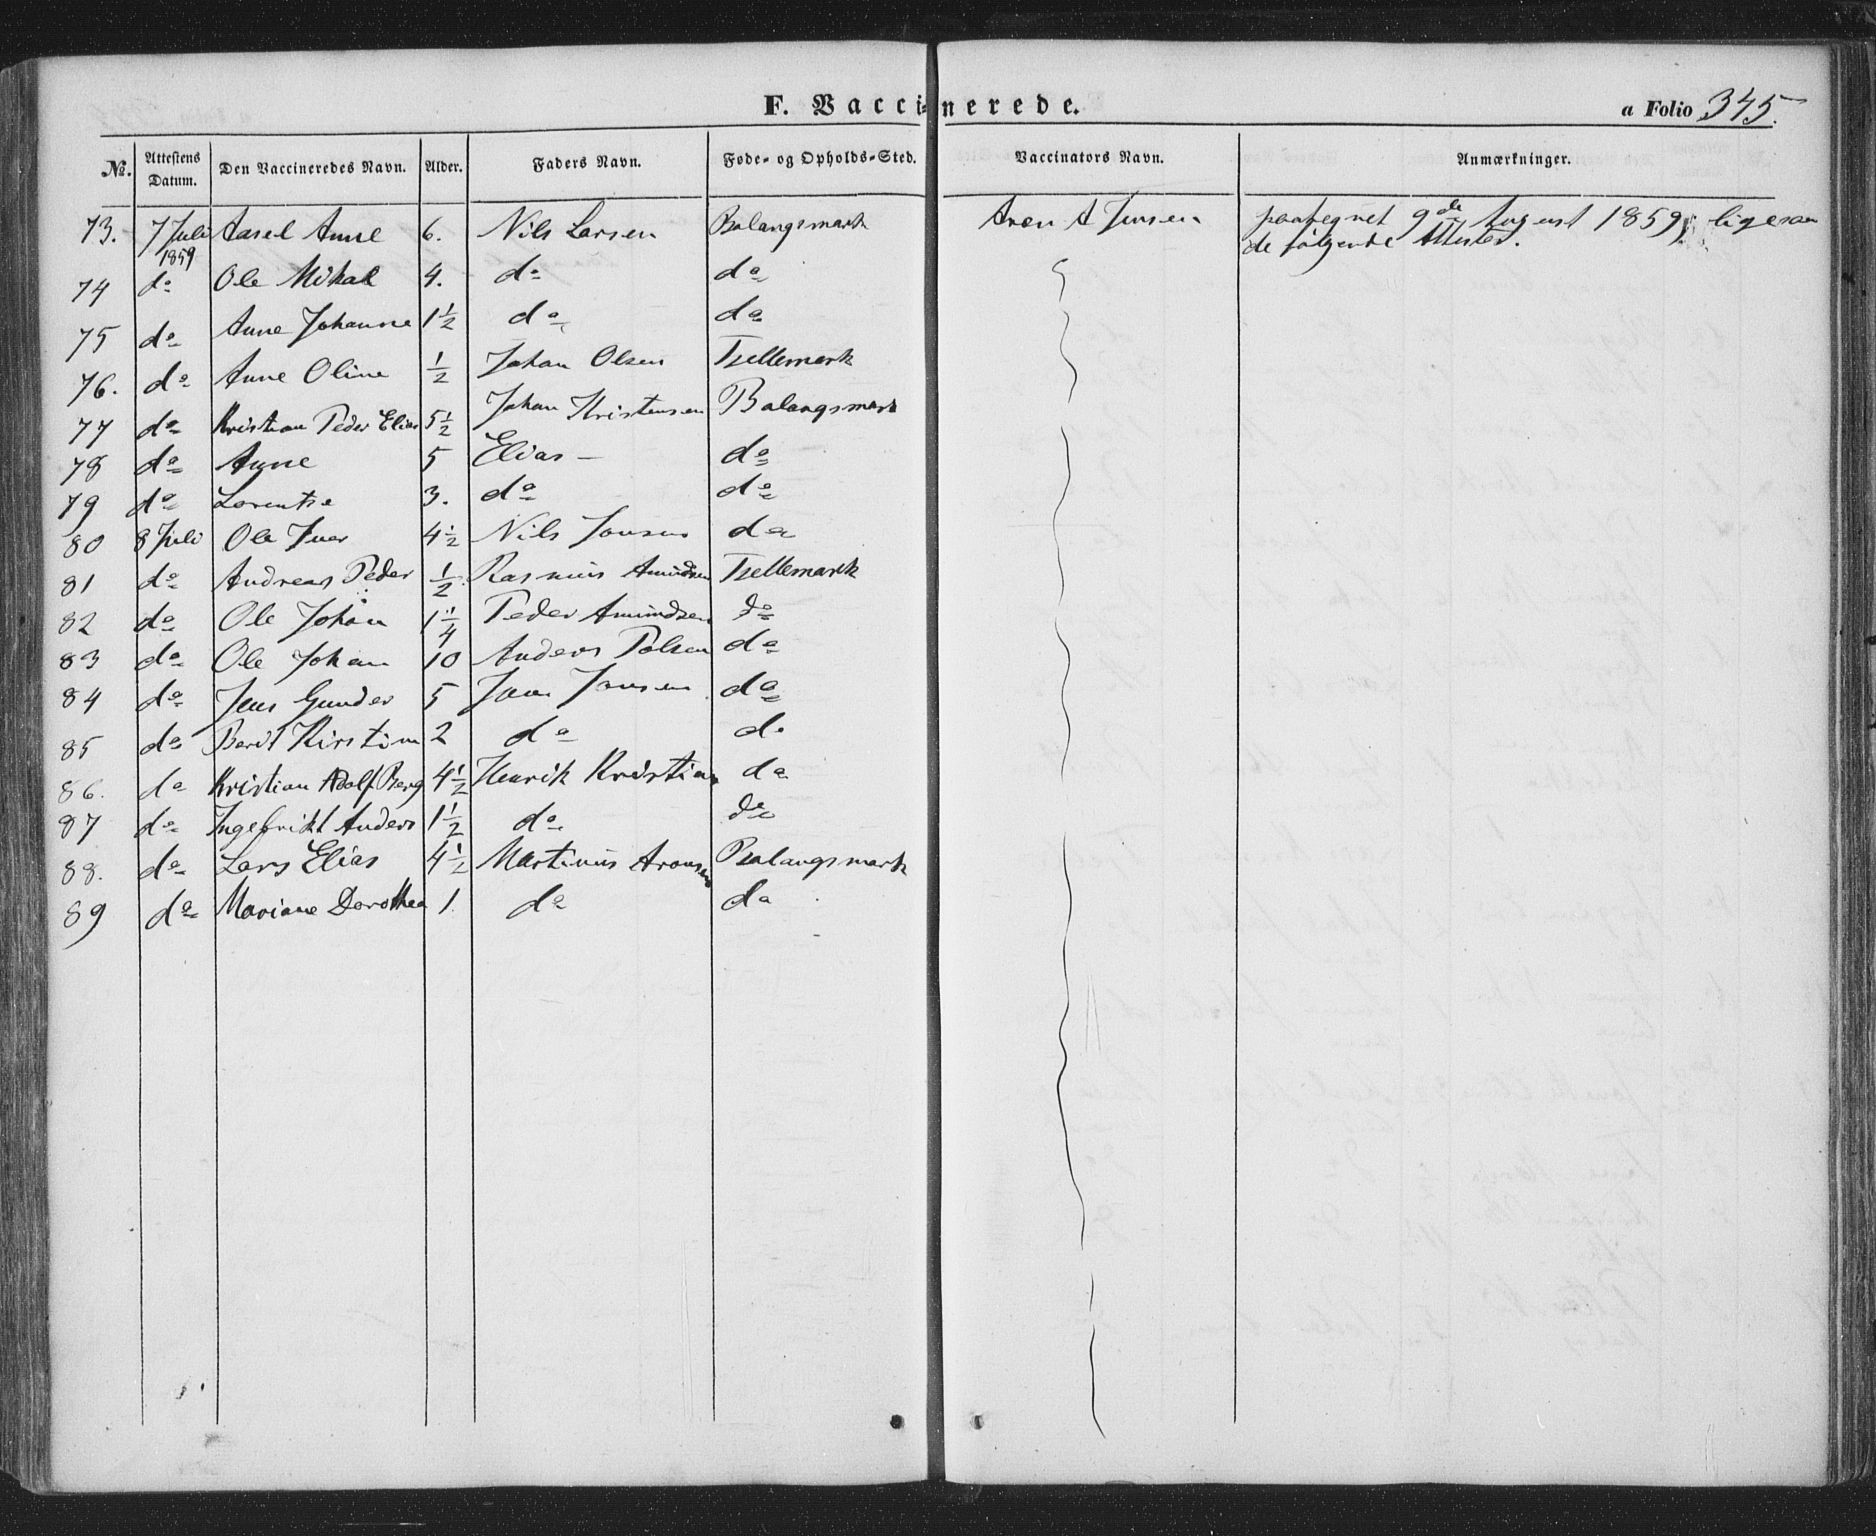 F. Vaccinerede.
a Folio 345.
No. Attestens Datum. Den Vaccineredes Navn. Alder. Faders Navn. Føde- og Opholds-Sted. Vaccinators Navn. Anmærkninger.
73. 7 Juli 1859 Aasel Anne 6. Nils Larsen Balangsmark Aren A Jensen paategnet 9de August 1859, ligesaa
de følgende Attester.
74 do Ole Mikal 4. do do
75 do Anne Johanne 1 1/2 do do
76. do Anne Oline 1/2 Johan Olsen Tsellemark
77 do Kristian Peder Elias 5 1/2 Johan Kristensen Balangsmark
78 do Anne 5 Elias — do
79 do Lorentse 3. do do
80 8 Juli Ole Iver 4 1/2 Nils Jonsen do
81 do Andreas Peder 1/2 Rasmus Amundsen Tsellemark
82 do Ole Johan 1 1/4 Peder Amundsen do
83 do Ole Johan 10 Anders Polsen do
84 do Jens Gunder 5 Jon Jonsen do
85 do Berit Kirstine 2 do do
86. do Kristian Adolf Berg 4 1/2 Henrik Kristian do
87 do Ingebrikt Anders 1 1/2 do do
88. do Lars Elias 4 1/2 Martinus Aronsen Balangsmark
89 do Mariane Dorothea 1. do do